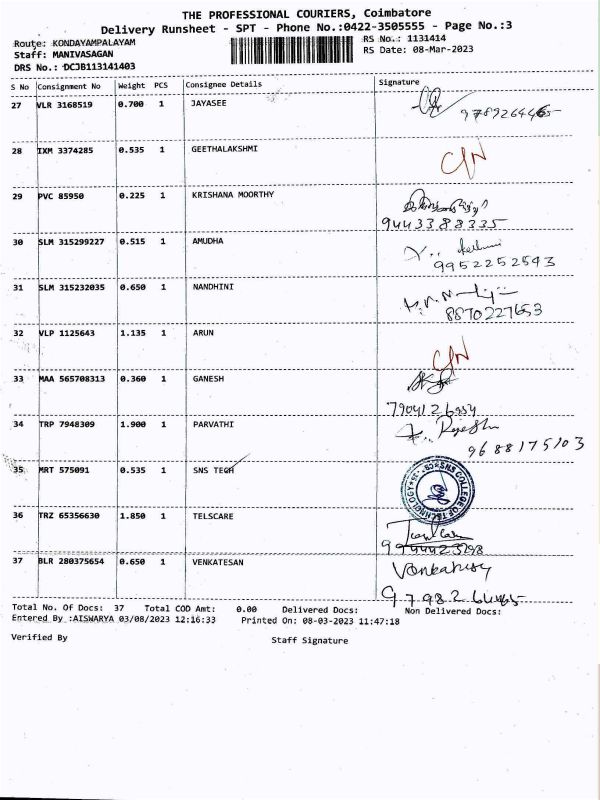 THE PROFESSIONAL COURIERS, Coimbatore
Delivery Runsheet - SPT - Phone No.:0422-3505555 - Page No.:3
Route: KONDAYAMPALAYAM RS No.: 1131414
Staff: MANIVASAGAN RS Date: 08-Mar-2023
DRS No.: DCJB113141403
S No Consignment No Weight PCS Consignee Details Signature
27 VLR 3168519 0.700 1 JAYASEE
28 IXM 3374285 0.535 1 GEETHALAKSHMI C/N
29 PVC 85950 0.225 1 KRISHANA MOORTHY
9443388335
30 SLM 315299227 0.515 1 AMUDHA
9952252593
31 SLM 315232035 0.650 1 NANDHINI
8870227653
32 VLP 1125643 1.135 1 ARUN C/N
33 MAA 565708313 0.360 1 GANESH
34 TRP 7948309 1.900 1 PARVATHI
9688175103
35 MRT 575091 0.535 1 SNS TECH SNS COLLEGE OF TECHNOLOGY
36 TRZ 65356630 1.850 1 TELSCARE
37 BLR 280375654 0.650 1 VENKATESAN
Total No. Of Docs: 37 Total COD Amt: 0.00 Delivered Docs: Non Delivered Docs:
Entered By :AISWARYA 03/08/2023 12:16:33 Printed On: 08-03-2023 11:47:18
Verified By Staff Signature